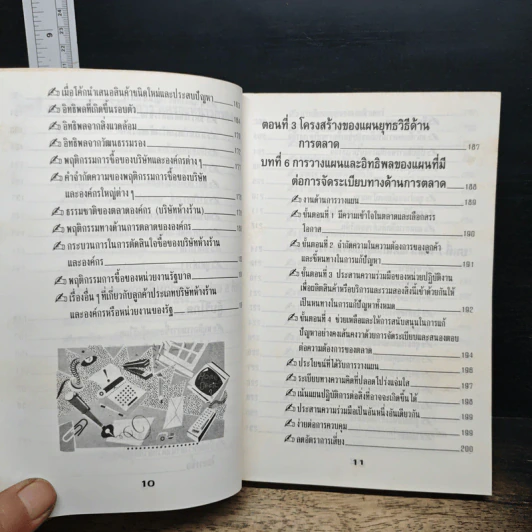 เมื่อได้นำเสนอสินค้าชนิดใหม่และประสบปัญหา
อิทธิพลที่เกิดขึ้นรอบตัว
อิทธิพลจากสิ่งแวดล้อม
อิทธิพลจากวัฒนธรรมรอง
พฤติกรรมการซื้อของบริษัทและองค์กรต่างๆ
คำจำกัดความของพฤติกรรมการซื้อของบริษัท
และองค์กรใหญ่ต่างๆ
ธรรมชาติของตลาดองค์กร (บริษัทห้างร้าน)
พฤติกรรมทางด้านการตลาดขององค์กร
กระบวนการในการตัดสินใจซื้อของบริษัทห้างร้าน
และองค์กร
พฤติกรรมการซื้อของหน่วยงานรัฐบาล
เรื่องอื่น ๆ ที่เกี่ยวกับลูกค้าประเภทบริษัทห้างร้าน
และองค์กรหรือหน่วยงานของรัฐ
10
ตอนที่ 3 โครงสร้างของแผนยุทธวิธีด้าน
การตลาด 187
บทที่ 6 การวางแผนและอิทธิพลของแผนที่มี
ต่อการจัดระเบียบทางด้านการตลาด 188
งานด้านการวางแผน 189
ขั้นตอนที่ 1 มีความเข้าใจในตลาดและเลือกสรร
โอกาส 190
ขั้นตอนที่ 2 จำกัดความในความต้องการของลูกค้า
และชี้หนทางในการแก้ปัญหา 191
ขั้นตอนที่ 3 ประสานความร่วมมือของหน่วยปฏิบัติงาน
เพื่อผลิตสินค้าหรือบริการและรวมสองสิ่งนี้เข้าด้วยกันให้
เป็นหนทางในการแก้ปัญหาทั้งหมด 192
ขั้นตอนที่ 4 ช่วยเหลือและให้การสนับสนุนในการแก้
ปัญหาอย่างคงเส้นคงวาด้วยการจัดระเบียบและสนองตอบ
ต่อความต้องการของตลาด 194
ประโยชน์ที่ได้รับการวางแผน 195
ระเบียบทางความคิดที่ปลอดโปร่งแจ่มใส 197
เน้นแผนปฏิบัติการต่อสิ่งที่อาจจะเกิดขึ้นได้ 198
ประสานความร่วมมือเป็นอันหนึ่งอันเดียวกัน 199
ง่ายต่อการควบคุม 199
ลดอัตราการเสี่ยง 200
11